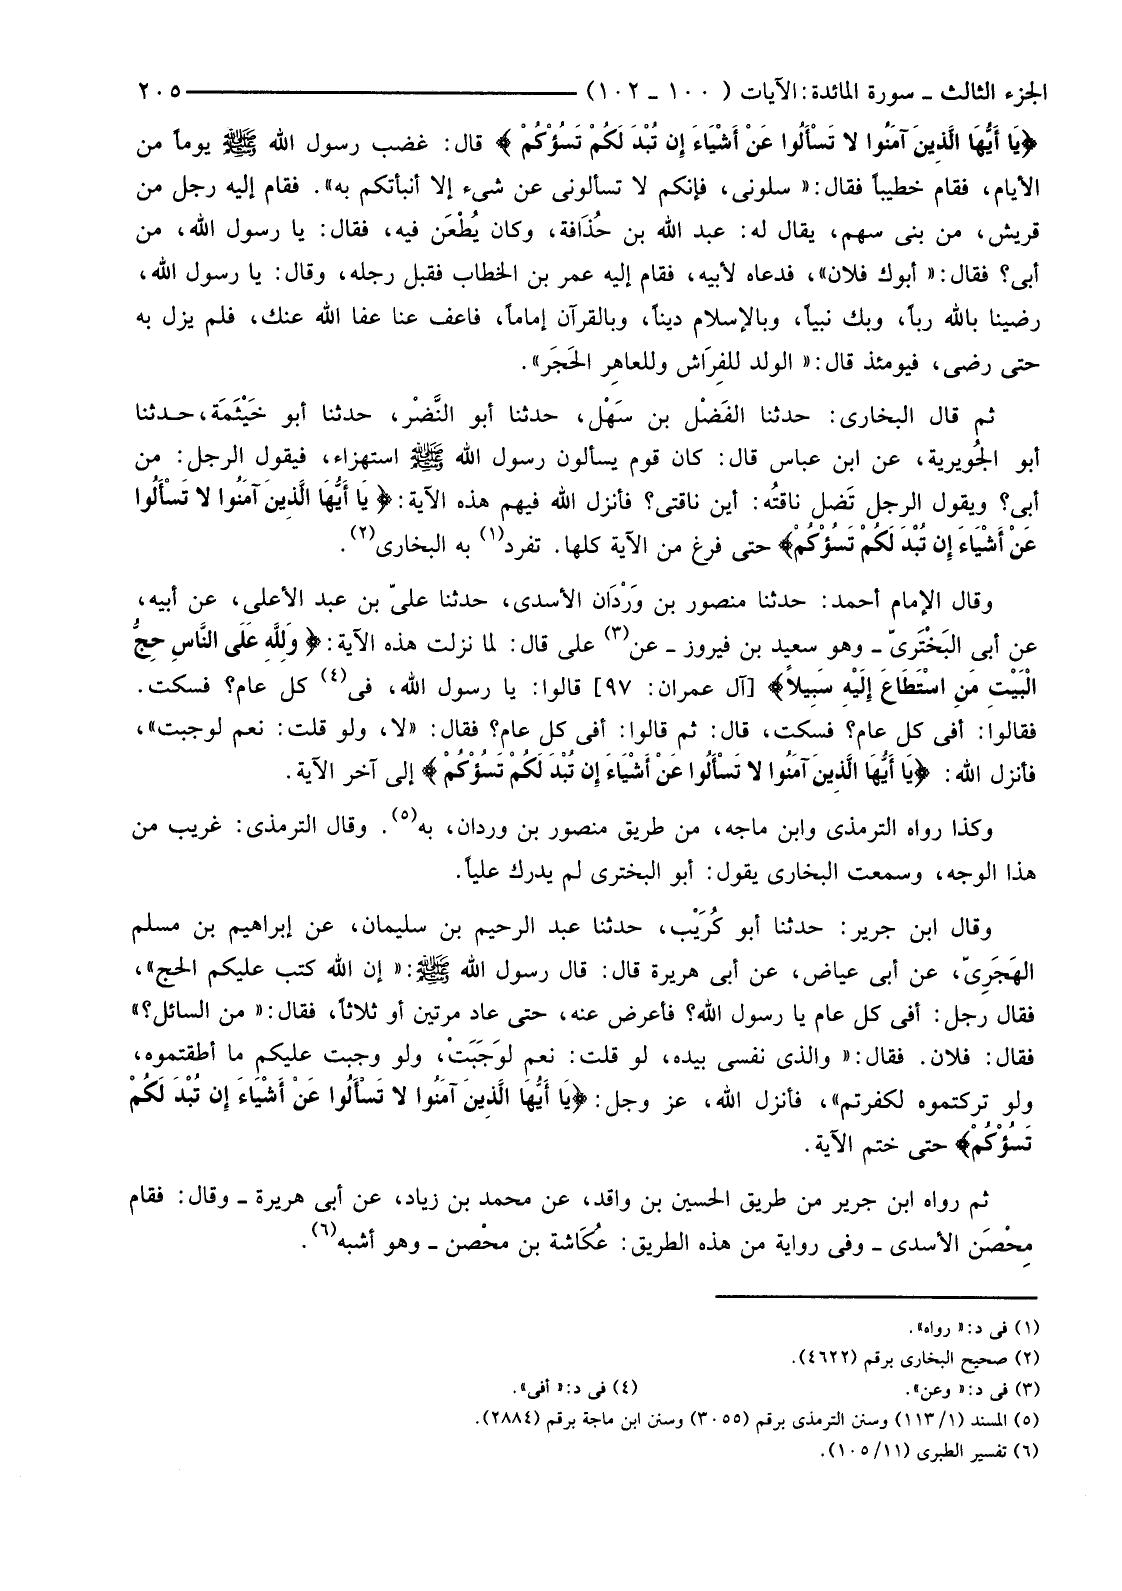 الجزء الثالث ـ سورة المائدة: الآيات ( ١٠٠ ـ ١٠٢) ٢٠٥
﴿يَا أَيُّهَا الَّذِينَ آمَنُوا لا تَسْأَلُوا عَنْ أَشْيَاءَ إِن تُبْدَ لَكُمْ تَسُؤْكُمْ ﴾ قال: غضب رسول الله ﷺ يوماً من
الأيام، فقام خطيباً فقال:« سلونى، فإنكم لا تسألونى عن شىء إلا أنبأتكم به». فقام إليه رجل من
قريش، من بنى سهم، يقال له: عبد الله بن حُذَافة، وكان يُطْعَن فيه، فقال: يا رسول الله، من
أبى؟ فقال:« أبوك فلان»، فدعاه لأبيه، فقام إليه عمر بن الخطاب فقبل رجله، وقال: يا رسول الله،
رضينا بالله رباً، وبك نبياً، وبالإسلام ديناً، وبالقرآن إماماً، فاعف عنا عفا الله عنك، فلم يزل به
حتى رضى، فيومئذ قال:« الولد للفِرَاش وللعاهِر الحَجَر».
ثم قال البخارى: حدثنا الفَضْل بن سَهْل، حدثنا أبو النَّضْر، حدثنا أبو خَيْثَمَة، حدثنا
أبو الجُويرية، عن ابن عباس قال: كان قوم يسألون رسول الله ﷺ استهزاء، فيقول الرجل: من
أبى؟ ويقول الرجل تَضل ناقتُه: أين ناقتى؟ فأنزل الله فيهم هذه الآية:﴿ يَا أَيُّهَا الَّذِينَ آمَنُوا لا تَسْأَلُوا
عَنْ أَشْيَاءَ إِن تُبْدَ لَكُمْ تَسُؤْكُمْ﴾ حتى فرغ من الآية كلها. تفرد(١) به البخارى(٢).
وقال الإمام أحمد: حدثنا منصور بن وَرْدَان الأسدى، حدثنا علىّ بن عبد الأعلى، عن أبيه،
عن أبى البَخْتَرىّ ـ وهو سعيد بن فيروز ـ عن(٣) على قال: لما نزلت هذه الآية:﴿ وَلِلَّهِ عَلَى النَّاسِ حِجُّ
الْبَيْتِ مَنِ اسْتَطَاعَ إِلَيْهِ سَبِيلاً﴾ [آل عمران: ٩٧] قالوا: يا رسول الله، فى(٤) كل عام؟ فسكت.
فقالوا: أفى كل عام؟ فسكت، قال: ثم قالوا: أفى كل عام؟ فقال: «لا، ولو قلت: نعم لوجبت»،
فأنزل الله: ﴿يَا أَيُّهَا الَّذِينَ آمَنُوا لا تَسْأَلُوا عَنْ أَشْيَاءَ إِن تُبْدَ لَكُمْ تَسُؤْكُمْ ﴾ إلى آخر الآية.
وكذا رواه الترمذى وابن ماجه، من طريق منصور بن وردان، به(٥). وقال الترمذى: غريب من
هذا الوجه، وسمعت البخارى يقول: أبو البخترى لم يدرك علياً.
وقال ابن جرير: حدثنا أبو كُرَيْب، حدثنا عبد الرحيم بن سليمان، عن إبراهيم بن مسلم
الهَجَرِىّ، عن أبى عياض، عن أبى هريرة قال: قال رسول الله ﷺ:« إن الله كتب عليكم الحج»،
فقال رجل: أفى كل عام يا رسول الله؟ فأعرض عنه، حتى عاد مرتين أو ثلاثاً، فقال:« من السائل؟»
فقال: فلان. فقال:« والذى نفسى بيده، لو قلت: نعم لوَجَبَتْ، ولو وجبت عليكم ما أطقتموه،
ولو تركتموه لكفرتم»، فأنزل الله، عز وجل:﴿يَا أَيُّهَا الَّذِينَ آمَنُوا لا تَسْأَلُوا عَنْ أَشْيَاءَ إِن تُبْدَ لَكُمْ
تَسُؤْكُمْ﴾ حتى ختم الآية.
ثم رواه ابن جرير من طريق الحسين بن واقد، عن محمد بن زياد، عن أبى هريرة ـ وقال: فقام
مِحْصَن الأسدى ـ وفى رواية من هذه الطريق: عُكَاشة بن محْصن ـ وهو أشبه(٦).
(١) فى د:« رواه».
(٢) صحيح البخارى برقم (٤٦٢٢).
(٣) فى د:« وعن». (٤) فى د:« أفى».
(٥) المسند (١/ ١١٣) وسنن الترمذى برقم (٣٠٥٥) وسنن ابن ماجة برقم (٢٨٨٤).
(٦) تفسير الطبرى (١١/ ١٠٥).